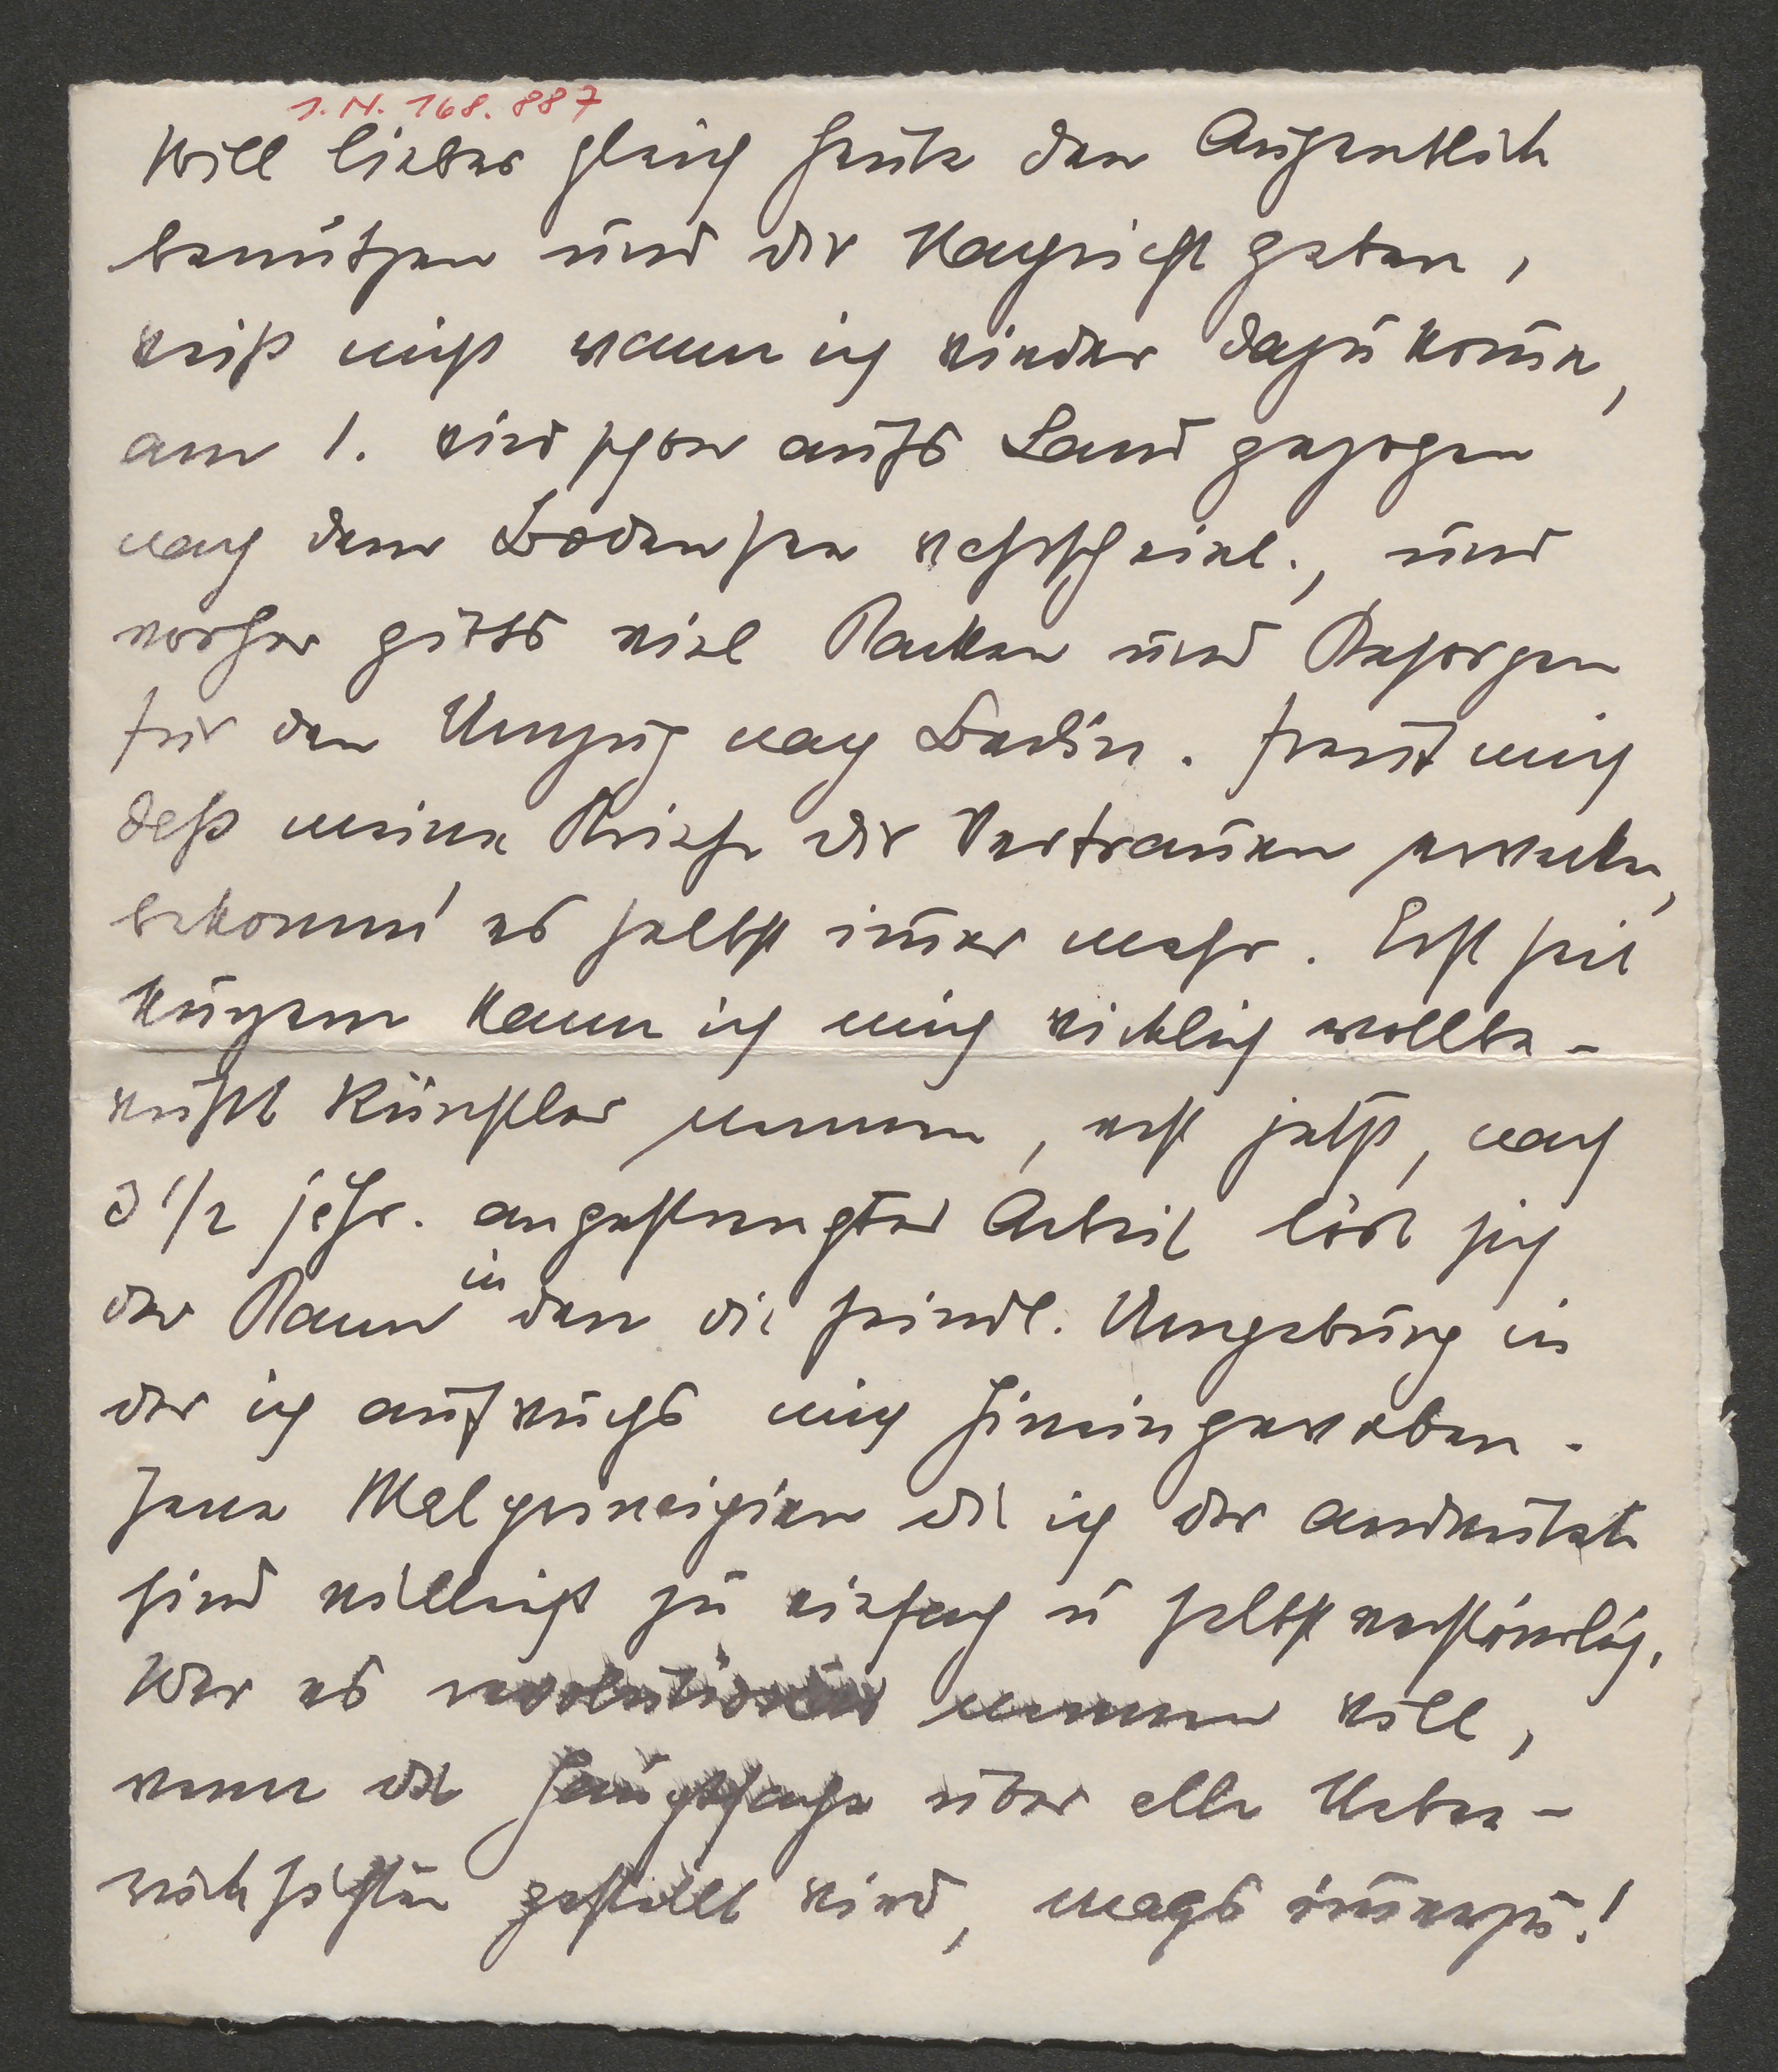 I.N. 168.887
Will lieber gleich heute den Augenblick
benützen und dir Nachricht geben,
weiß nicht wann ich wieder dazu kom̄e,
am 1. wird schon aufs Land gezogen
nach dem Bodensee wahrscheinl., und
vorher gibts viel Packen und Besorgen
für den Umzug nach Berlin. Freut mich
daß meine Briefe dir Vertrauen erwecken,
bekomm' es selbst im̄er mehr. Erst seit
kurzem kann ich mich wirklich vollbe-
wußt Künstler nennen, erst jetzt, nach
3 1/2 jähr. angestrengter Arbeit löst sich
der Bann in den die feindl. Umgebung in
der ich aufwuchs mich hineingewoben.
Jene Malprincipien die ich dir andeutete
sind vielleicht zu einfach u selbstverständlich.
Wer es revolutionär nennen will,
wenn die Hauptsache über alle Neben-
rücksichten gestellt wird, mags im̄erzu!